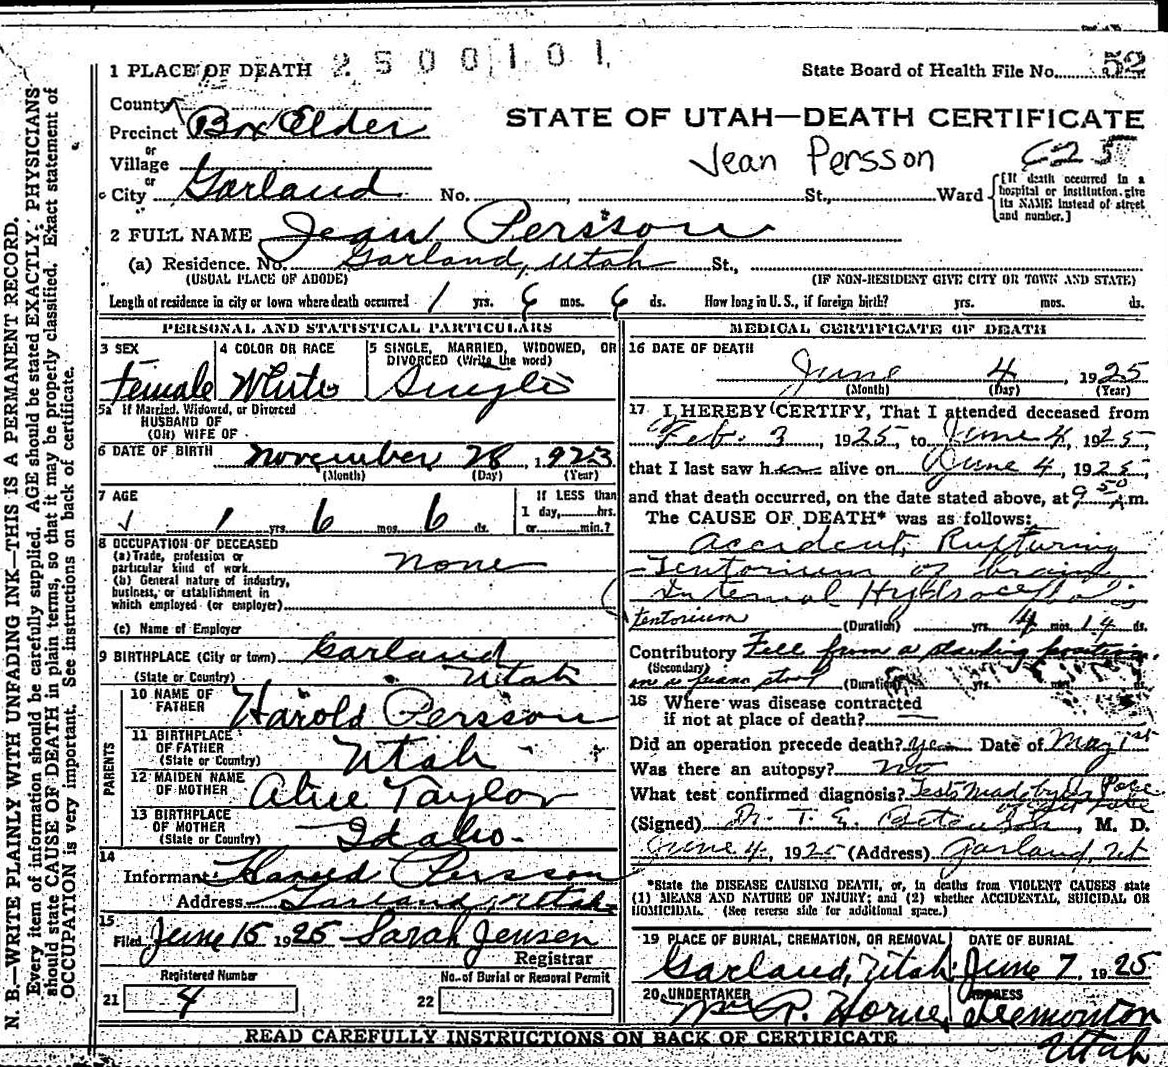 2500101
1 PLACE OF DEATH
State Board of Health File No. 52
County
Precinct Box Elder
STATE OF UTAH—DEATH CERTIFICATE
or
Village
Jean Persson
or
City Garland No. St., Ward
[If death occurred in a
hospital or institution, give
its NAME instead of street
and number.]
2 FULL NAME Jean Persson
(a) Residence. No. Garland, Utah St.,
(USUAL PLACE OF ABODE) (IF NON-RESIDENT GIVE CITY OR TOWN AND STATE)
Length of residence in city or town where death occurred 1 yrs. 6 mos. 6 ds. How long in U. S., if foreign birth? yrs. mos. ds.
PERSONAL AND STATISTICAL PARTICULARS
3 SEX
Female
4 COLOR OR RACE
White
5 SINGLE, MARRIED, WIDOWED, OR
DIVORCED (Write the word)
Single
5a If Married, Widowed, or Divorced
HUSBAND OF
(OR) WIFE OF
6 DATE OF BIRTH November 28, 1923
(Month) (Day) (Year)
7 AGE
1 yrs. 6 mos. 6 ds.
If LESS than
1 day, hrs.
or min.?
8 OCCUPATION OF DECEASED
(a) Trade, profession or
particular kind of work none
(b) General nature of industry,
business, or establishment in
which employed (or employer)
(c) Name of Employer
9 BIRTHPLACE (City or town) Garland
(State or Country) Utah
PARENTS
10 NAME OF
FATHER Harold Persson
11 BIRTHPLACE
OF FATHER
(State or Country) Utah
12 MAIDEN NAME
OF MOTHER Alice Taylor
13 BIRTHPLACE
OF MOTHER
(State or Country) Idaho
14
Informant Harold Persson
Address Garland, Utah
15
Filed June 15 1925 Sarah Jensen
Registrar
Registered Number
21 4
No. of Burial or Removal Permit
22
MEDICAL CERTIFICATE OF DEATH
16 DATE OF DEATH
June 4, 1925
(Month) (Day) (Year)
17 I HEREBY CERTIFY, That I attended deceased from
Feb. 3, 1925, to June 4, 1925
that I last saw her alive on June 4, 1925,
and that death occurred, on the date stated above, at 9 50 m.
The CAUSE OF DEATH* was as follows:
Accident, Rupturing
Tentorium of brain
Internal Hydrocephalis
tentorium (Duration) yrs. 4 mos. 14 ds.
Contributory Fell from a standing position
(Secondary)
on a piano stool (Duration) yrs. mos. ds.
18 Where was disease contracted
if not at place of death?
Did an operation precede death? yes Date of May 1st
Was there an autopsy? No
What test confirmed diagnosis? Tests made by Dr
(Signed) Dr. T. E., M. D.
June 4, 1925 (Address) Garland, Ut
*State the DISEASE CAUSING DEATH, or, in deaths from VIOLENT CAUSES state
(1) MEANS AND NATURE OF INJURY; and (2) whether ACCIDENTAL, SUICIDAL OR
HOMICIDAL. (See reverse side for additional space.)
19 PLACE OF BURIAL, CREMATION, OR REMOVAL
Garland, Utah
DATE OF BURIAL
June 7, 1925
20 UNDERTAKER
Wm R. Horne,
ADDRESS
Tremonton
Utah
READ CAREFULLY INSTRUCTIONS ON BACK OF CERTIFICATE
N. B.—WRITE PLAINLY WITH UNFADING INK—THIS IS A PERMANENT RECORD.
Every item of information should be carefully supplied. AGE should be stated EXACTLY. PHYSICIANS
should state CAUSE OF DEATH in plain terms, so that it may be properly classified. Exact statement of
OCCUPATION is very important. See instructions on back of certificate.